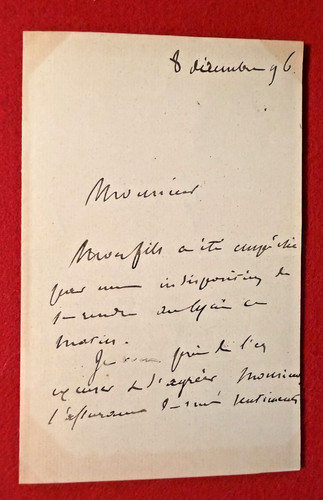 8 décembre 96
Monsieur
Mon fils a été empêché
par une indisposition de
se rendre au lycée ce
matin.
Je vous prie de l'en
excuser et d'agréer Monsieur
l'assurance de mes sentiments